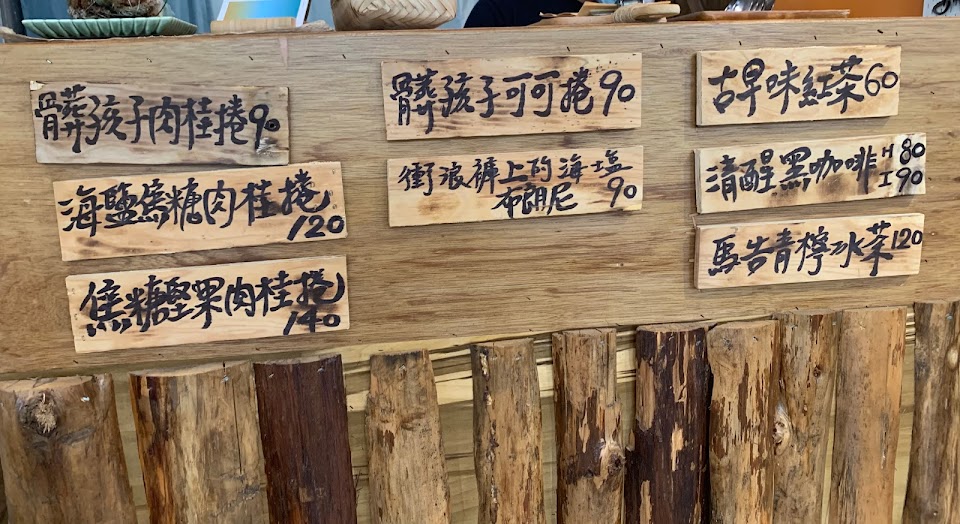 髒孩子肉桂捲90
海鹽焦糖肉桂捲
120
焦糖堅果肉桂捲
140
髒孩子可可捲90
衝浪褲上的海塩
布朗尼 90
古早味紅茶60
清醒黑咖啡 H 80
I 90
馬告青檸冰茶120